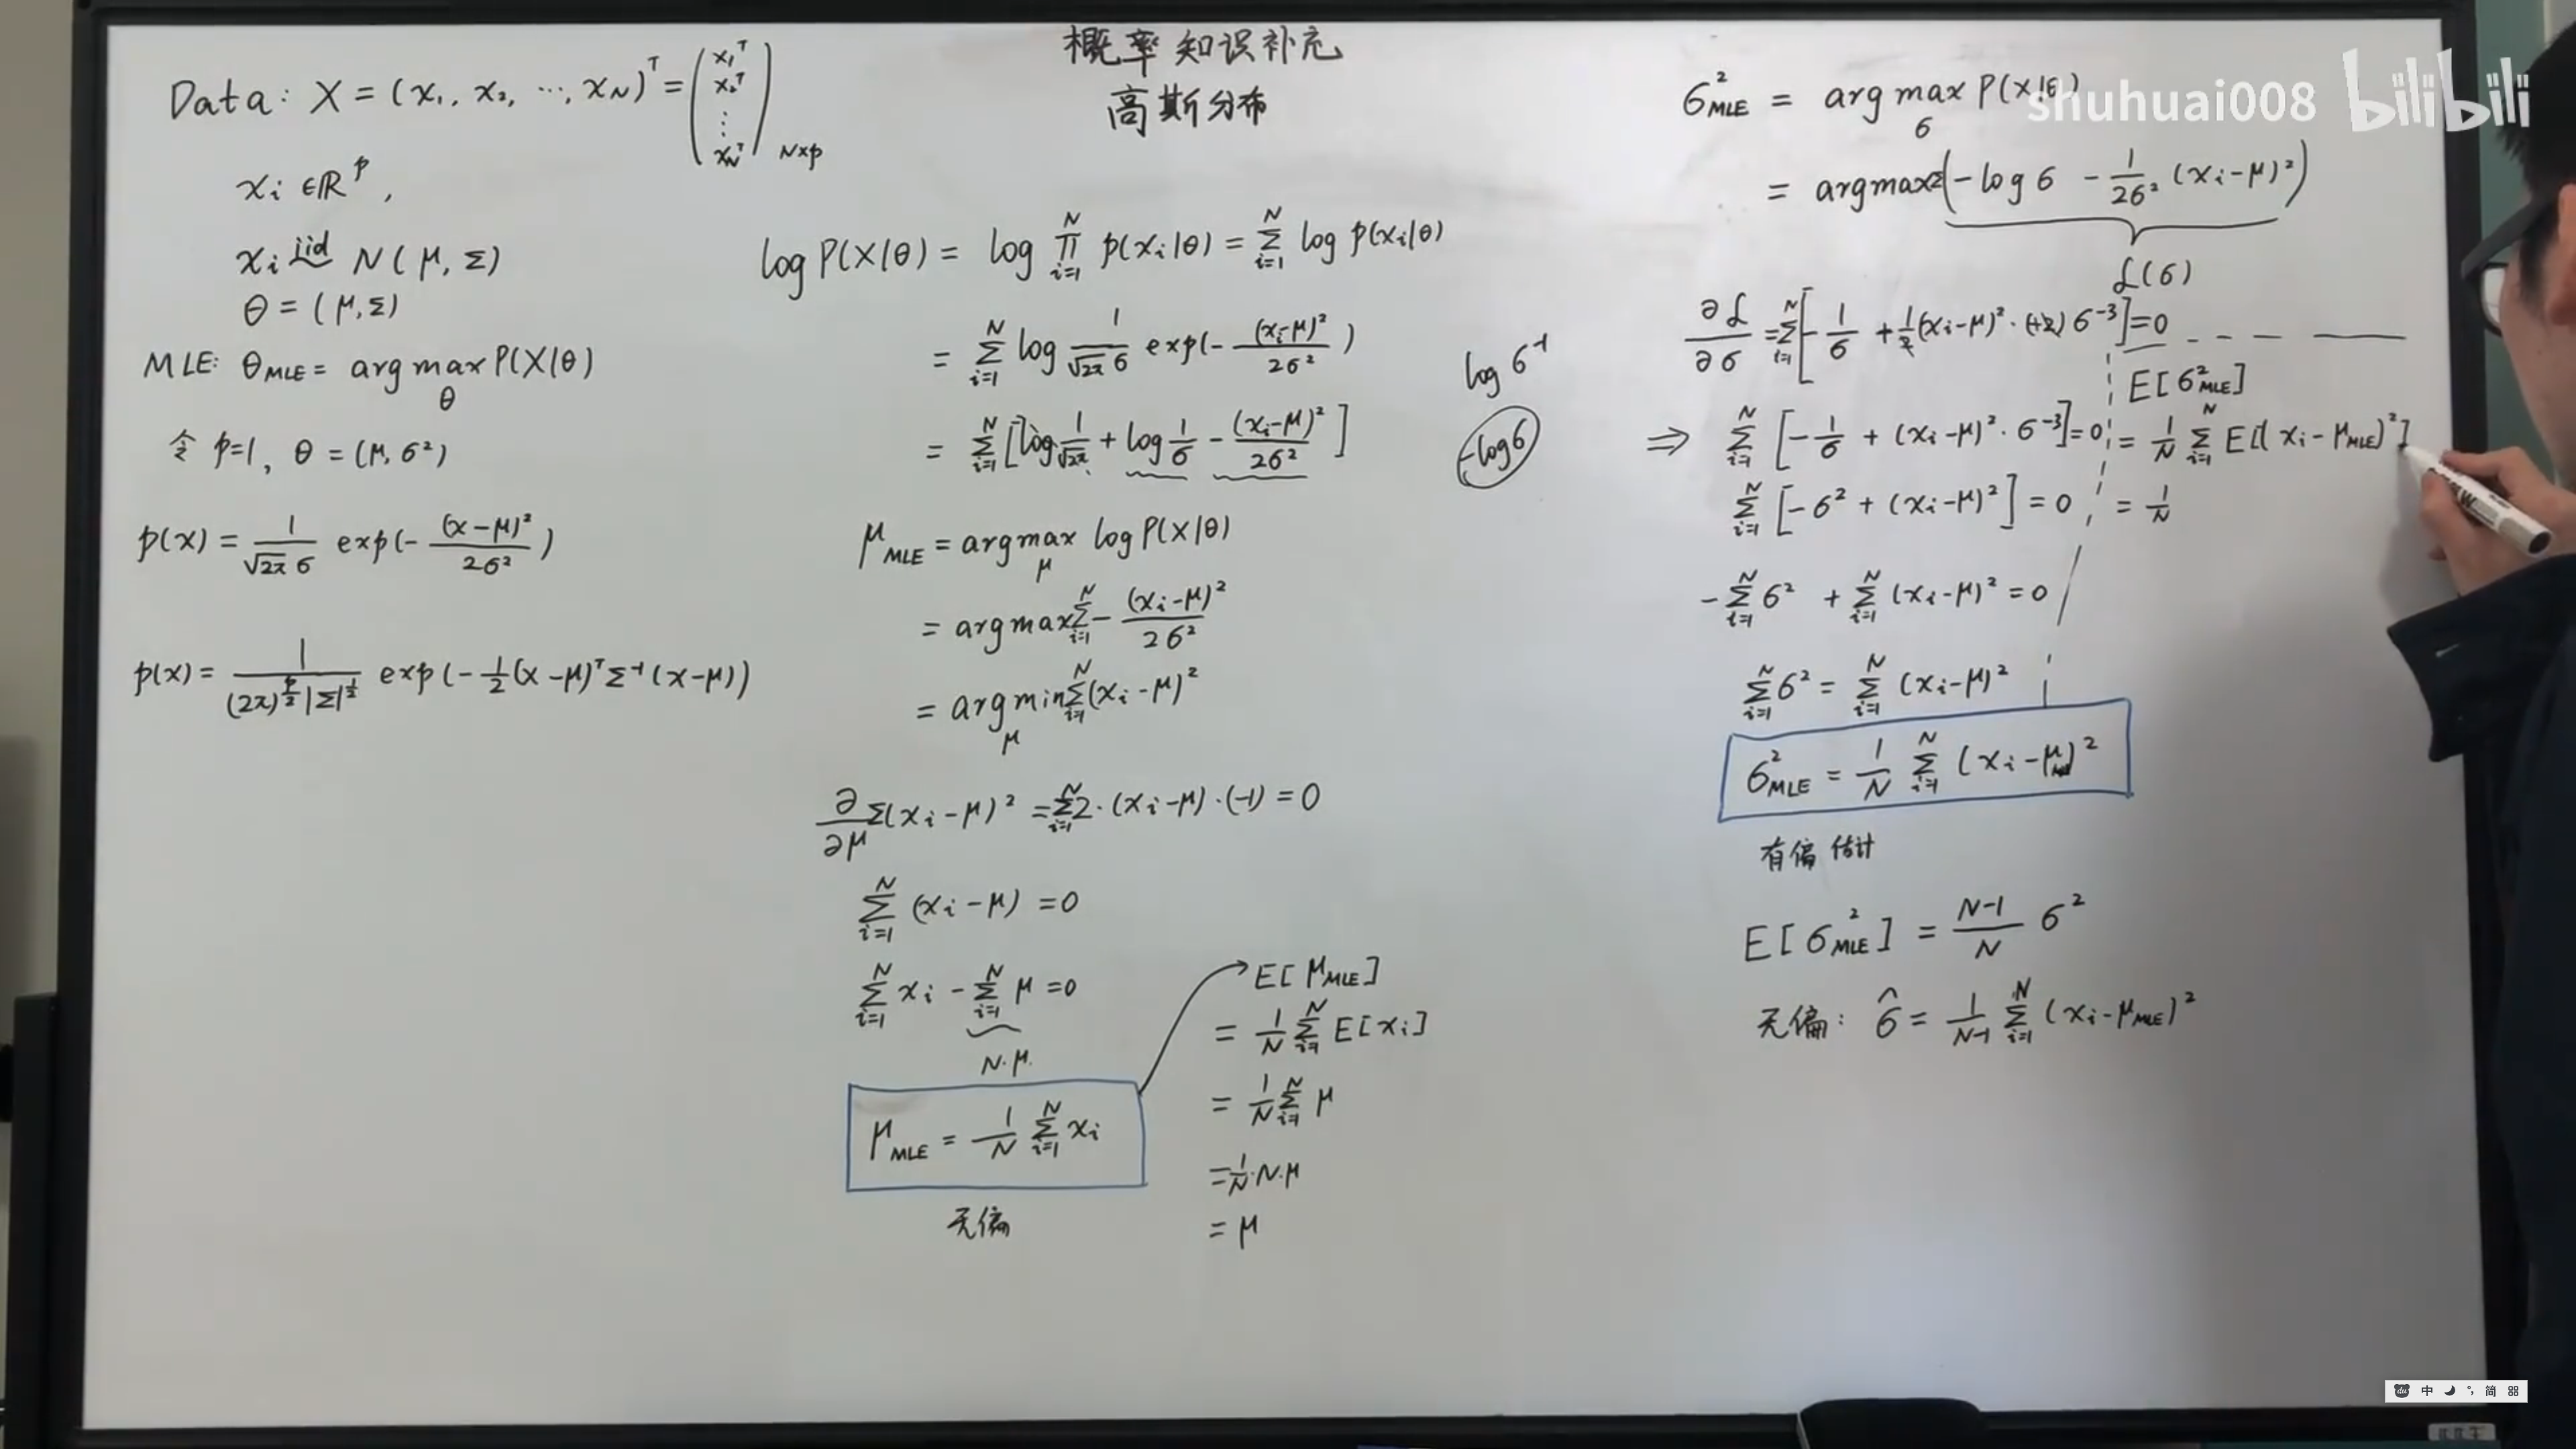 概率知识补充
高斯分布
Data: X = (x₁, x₂, ⋯, x_N)ᵀ = (x₁ᵀ x₂ᵀ ⋮ x_Nᵀ) N×p
xᵢ ∈ ℝᵖ,
xᵢ iid~ N(μ, Σ)
θ = (μ, Σ)
MLE: θ_MLE = arg max_θ P(X|θ)
令 p=1, θ = (μ, σ²)
p(x) = 1/(√2π σ) exp(- (x-μ)²/2σ²)
p(x) = 1/((2π)^{p/2} |Σ|^{1/2}) exp(-1/2 (x-μ)ᵀ Σ⁻¹ (x-μ))
log P(X|θ) = log ∏_{i=1}^N p(xᵢ|θ) = Σ_{i=1}^N log p(xᵢ|θ)
= Σ_{i=1}^N log 1/(√2π σ) exp(- (xᵢ-μ)²/2σ²)
= Σ_{i=1}^N [log 1/√2π + log 1/σ - (xᵢ-μ)²/2σ²]
log σ⁻¹
-log σ
μ_MLE = arg max_μ log P(X|θ)
= arg max Σ_{i=1}^N - (xᵢ-μ)²/2σ²
= arg min_μ Σ_{i=1}^N (xᵢ-μ)²
∂/∂μ Σ(xᵢ-μ)² = Σ_{i=1}^N 2·(xᵢ-μ)·(-1) = 0
Σ_{i=1}^N (xᵢ-μ) = 0
Σ_{i=1}^N xᵢ - Σ_{i=1}^N μ = 0
N·μ.
μ_MLE = 1/N Σ_{i=1}^N xᵢ
无偏
E[μ_MLE]
= 1/N Σ_{i=1}^N E[xᵢ]
= 1/N Σ_{i=1}^N μ
= 1/N·N·μ
= μ
σ²_MLE = arg max_σ P(X|θ)
= arg max Σ(-log σ - 1/2σ² (xᵢ-μ)²)
ℒ(σ)
∂ℒ/∂σ = Σ_{i=1}^N [-1/σ + 1/2 (xᵢ-μ)²·(+2) σ⁻³] = 0
⇒ Σ_{i=1}^N [-1/σ + (xᵢ-μ)²·σ⁻³] = 0
Σ_{i=1}^N [-σ² + (xᵢ-μ)²] = 0
-Σ_{i=1}^N σ² + Σ_{i=1}^N (xᵢ-μ)² = 0
Σ_{i=1}^N σ² = Σ_{i=1}^N (xᵢ-μ)²
σ²_MLE = 1/N Σ_{i=1}^N (xᵢ-μ_MLE)²
有偏估计
E[σ²_MLE] = (N-1)/N σ²
无偏: σ̂ = 1/(N-1) Σ_{i=1}^N (xᵢ-μ_MLE)²
E[σ²_MLE]
= 1/N Σ_{i=1}^N E[(xᵢ-μ_MLE)²]
= 1/N
shuhuai008 bilibili
du 中 简